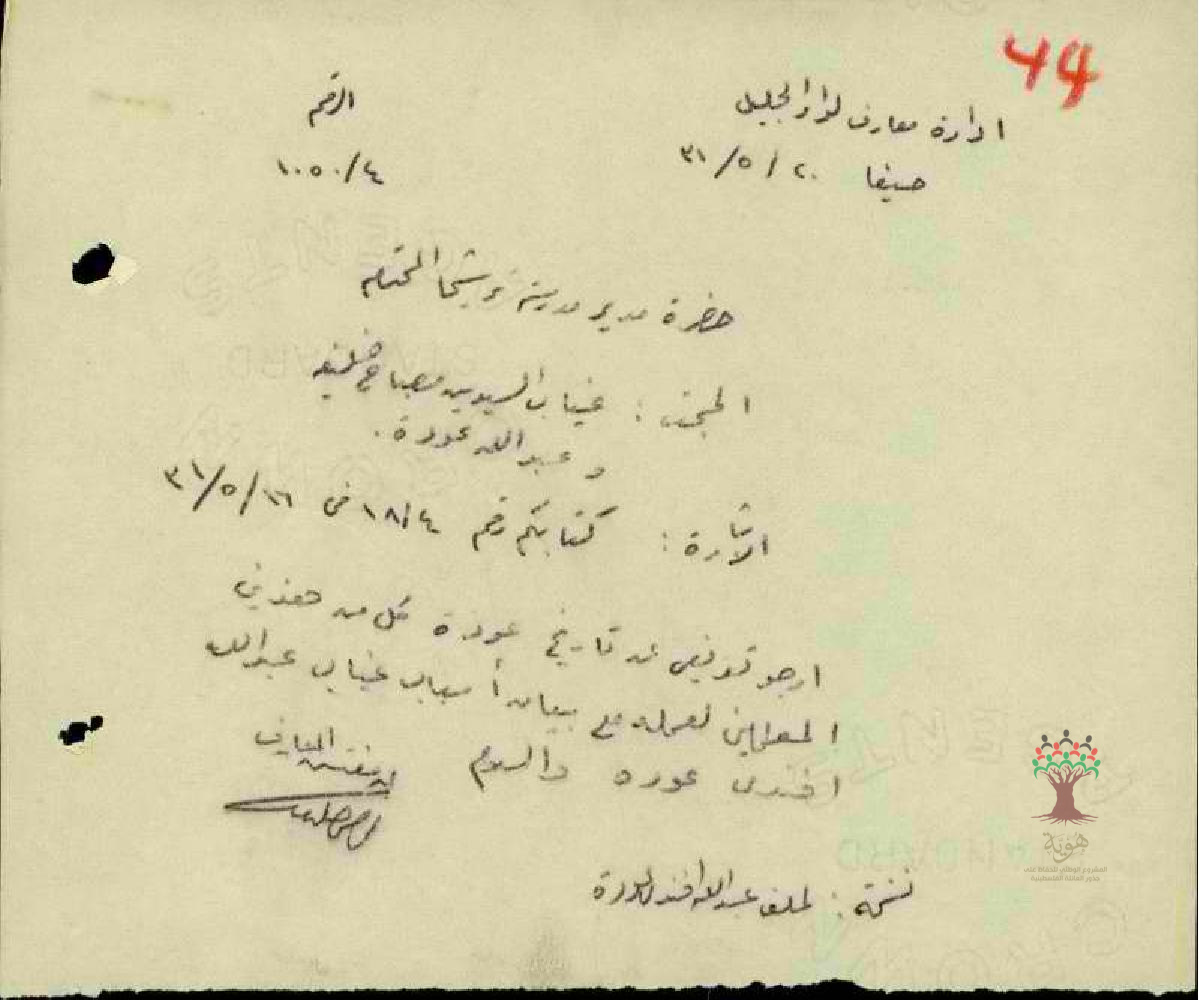 44
ادارة معارف لواء الجليل
حيفا ٢٠/٥/٣١
الرقم
١٠٥٠/٤
حضرة مدير مدرسة ترشيحا المحترم
المبحث : غياب السيدين مصباح
و عبدالله عودة .
الاشارة : كتابكم رقم ١٨/٤ في ١٦/٥/٣١
ارجو تعريفي عن تاريخ عودة كل من هذين
المعلمين لعمله مع بيان أسباب غياب عبدالله
افندي عوده والسلام
مفتش المعارف
نسخة : لملف عبدالله افندي عودة
هوية
المشروع الوطني للحفاظ على
جذور العائلة الفلسطينية